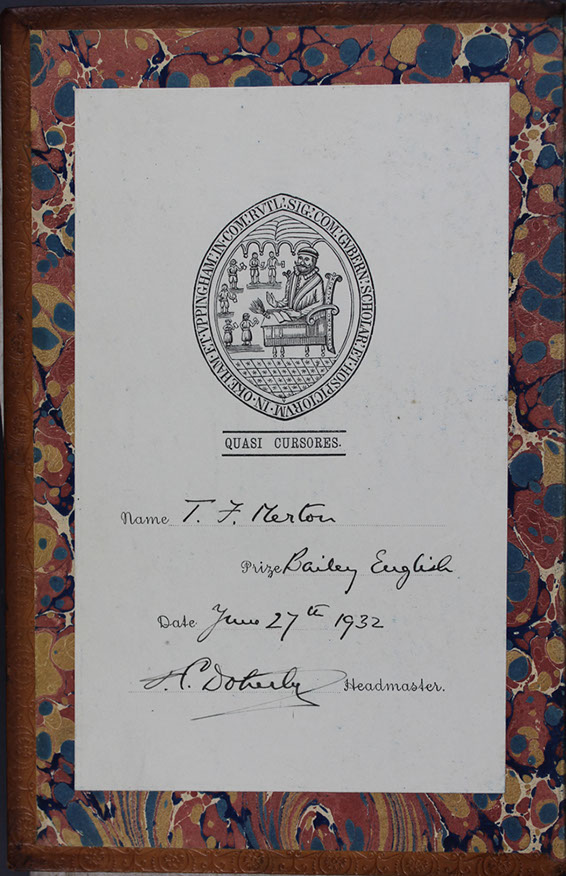 SIG: COM: GVBERN: SCHOLAR: ET HOSPICIORVM · IN · OKEHAM · ET VPPINGHAM: IN: COM: RVTL:
QUASI CURSORES.
Name T. F. Merton
Prize Bailey English
Date June 27th 1932
F. C. Doherty Headmaster.